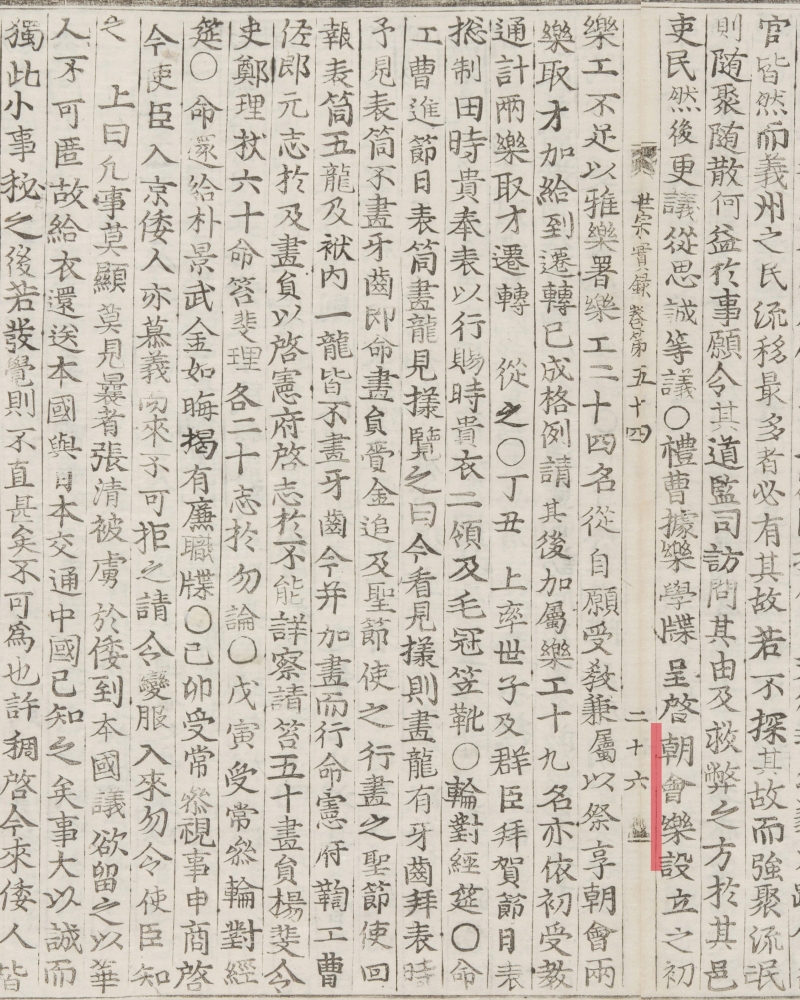 官皆然而義州之民流移最多者必有其故若不探其故而強聚流氓
則隨聚隨散何益於事願令其道監司訪問其由及救弊之方於其邑
吏民然後更議從思誠等議○禮曹據樂學牒呈啓朝會樂設立之初
世宗實錄卷第五十四 二十六
樂工不足以雅樂署樂工二十四名從自願受敎兼屬以祭享朝會兩
樂取才加給到遷轉已成格例請其後加屬樂工十九名亦依初受敎
通計兩樂取才遷轉 從之○丁丑 上率世子及群臣拜賀節日表
摠制田時貴奉表以行賜時貴衣二領及毛冠笠靴○輪對經筵○命
工曹進節日表筒畫龍見㨾覽之曰今看見㨾則畫龍有牙齒拜表時
予見表筒不畫牙齒卽命畫員賫金追及聖節使之行畫之聖節使回
報表筒五龍及袱內一龍皆不畫牙齒今幷加畫而行命憲府鞫工曹
佐郞元志於及畫員以啓憲府啓志於不能詳察請笞五十畫員楊斐令
史鄭理杖六十命笞斐理各二十志於勿論○戊寅受常參輪對經
筵○命還給朴景武金如晦揭有廉職牒○己卯受常參視事申商啓
今使臣入京倭人亦慕義而來不可拒之請令變服入來勿令使臣知
之 上曰凡事莫顯莫見曩者張淸被虜於倭到本國議欲留之以華
人不可匿故給衣還送本國與日本交通中國已知之矣事大以誠而
獨此小事秘之後若發覺則不直甚矣不可爲也許稠啓今來倭人皆